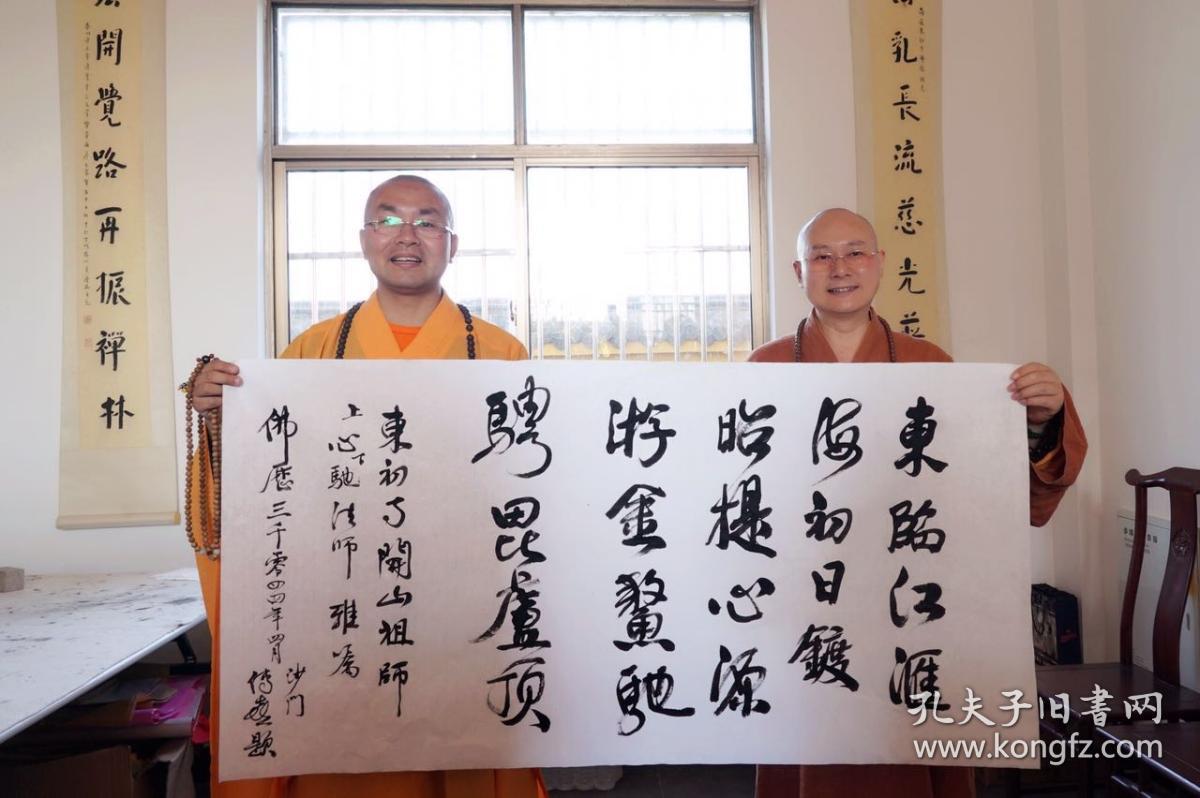 乳長流慈光
開覺路再振禪林
東臨江滙
海初日鍍
昭提心源
游金鰲馳
騁毘盧頂
東初寺開山祖師
上心下馳法師 雅屬
佛歷三千零四四年四月
沙门
傳喜題
孔夫子旧书网
www.kongfz.com